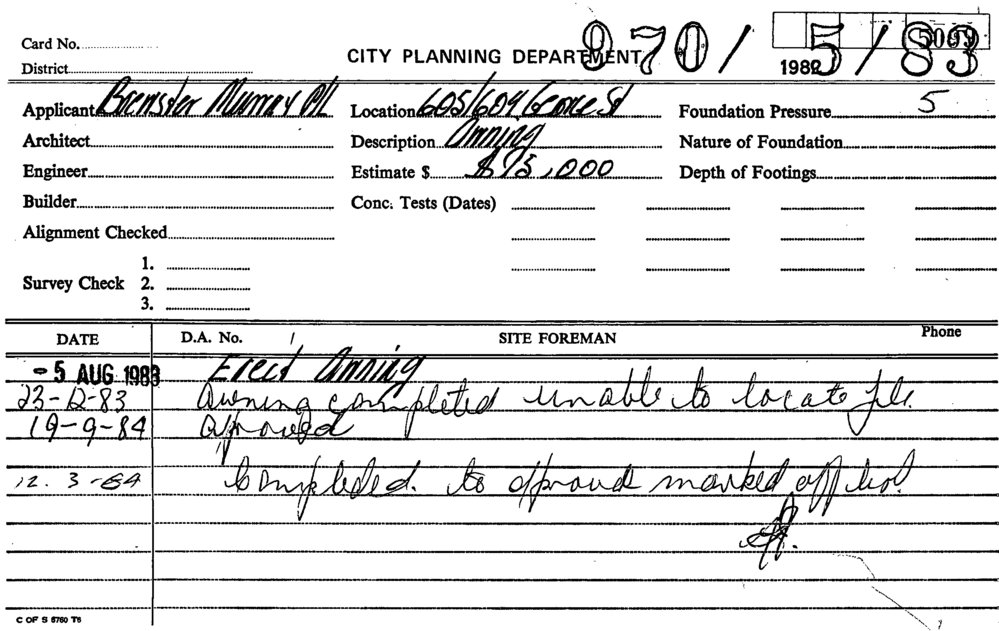 Card No.
District
CITY PLANNING DEPARTMENT
970/5/83
5009
198
Applicant Brewster Murray P/L
Location 605/609 George St
Foundation Pressure 5
Architect
Description Awning
Nature of Foundation
Engineer
Estimate $ $75,000
Depth of Footings
Builder
Conc. Tests (Dates)
Alignment Checked
Survey Check 1.
2.
3.
DATE D.A. No. SITE FOREMAN Phone
-5 AUG 1983 Erect Awning
23-12-83 Awning completed unable to locate file.
19-9-84
12.3-84 Completed. to marked off
C OF S 6760 T6